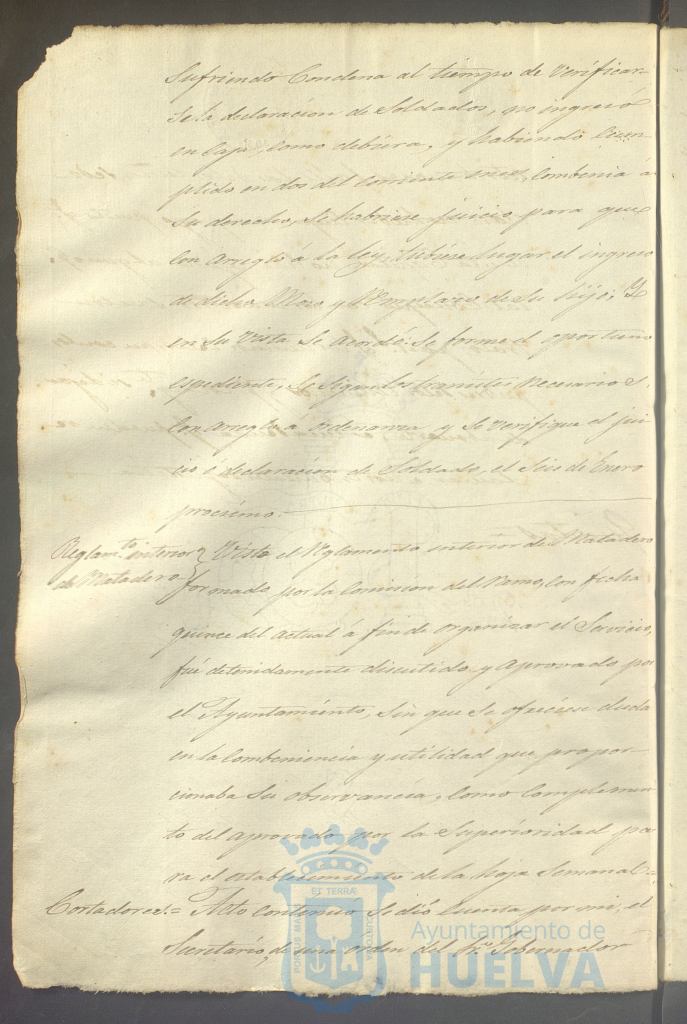 Sufriendo Condena al tiempo de Verificar-
se la declaracion de Soldados, no ingresó
en Caja, como debiera, y habiendo Cum-
plido en dos del Corriente mes, Combenia á
su derecho, se habriese juicio para que
con Arreglo á la ley, tubiese lugar el ingreso
de dicho Mozo y Remplazo de su hijo; Y
en su Vista Se Acordó: Se forme el oportuno
espediente, se sigan los tramites Necesarios
con Arreglo á ordenanza y se Verifique el jui-
cio ó declaracion de Soldado, el Seis de Enero
procsimo.
Reglam.to interior de Matadero } Visto el Reglamento interior de Matadero
formado por la Comision del Ramo, con fecha
quince del actual á fin de organizar el Servicio,
fué detenidamente discutido y Aprovado por
el Ayuntamiento, sin que se ofreciese duda
en la Combeniencia y utilidad que propor-
cionaba su observancia, como Complemen
to del aprovado por la Superioridad pa
ra el establecimiento de la hoja Semanal=
Cortadores.= Acto Continuo se dió Cuenta por mi, el
Secretario, de una orden del Sr. Gobernador
ET TERRÆ
PORTUS MARIS
CUSTODIA
Ayuntamiento de
HUELVA